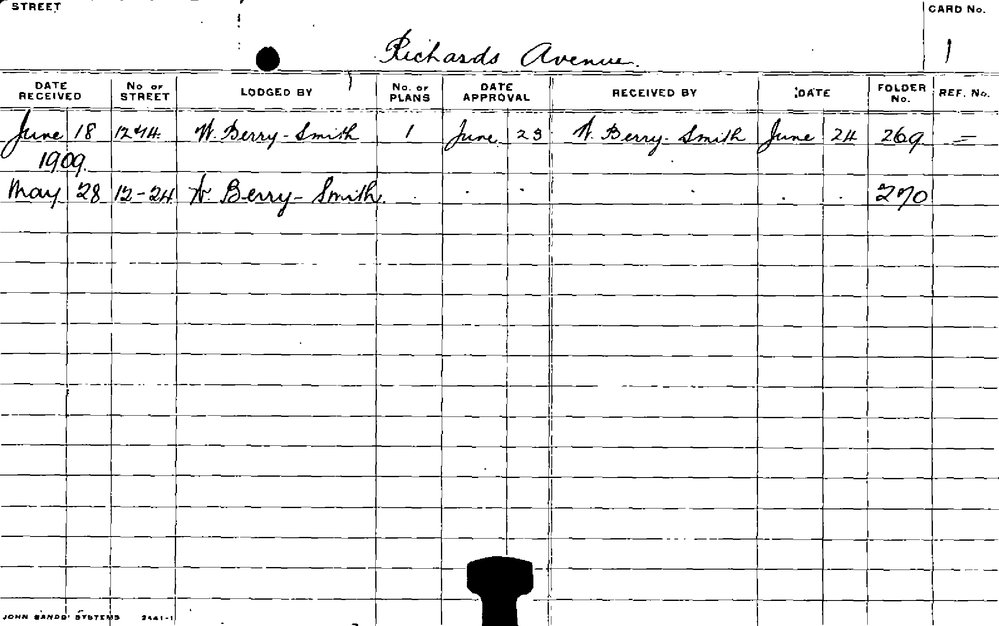 STREET
CARD No.
Richards Avenue.
1
DATE RECEIVED No of STREET LODGED BY No. of PLANS DATE APPROVAL RECEIVED BY DATE FOLDER No. REF. No.
June 18 12&14 W. Berry-Smith 1 June 23 W. Berry-Smith June 24 269 =
1909
May 28 12-24 W. Berry-Smith 270
JOHN SANDS' SYSTEMS 2441-1